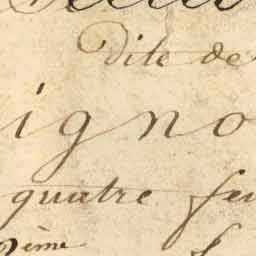 Dite de
igno
quatre feu
2ème